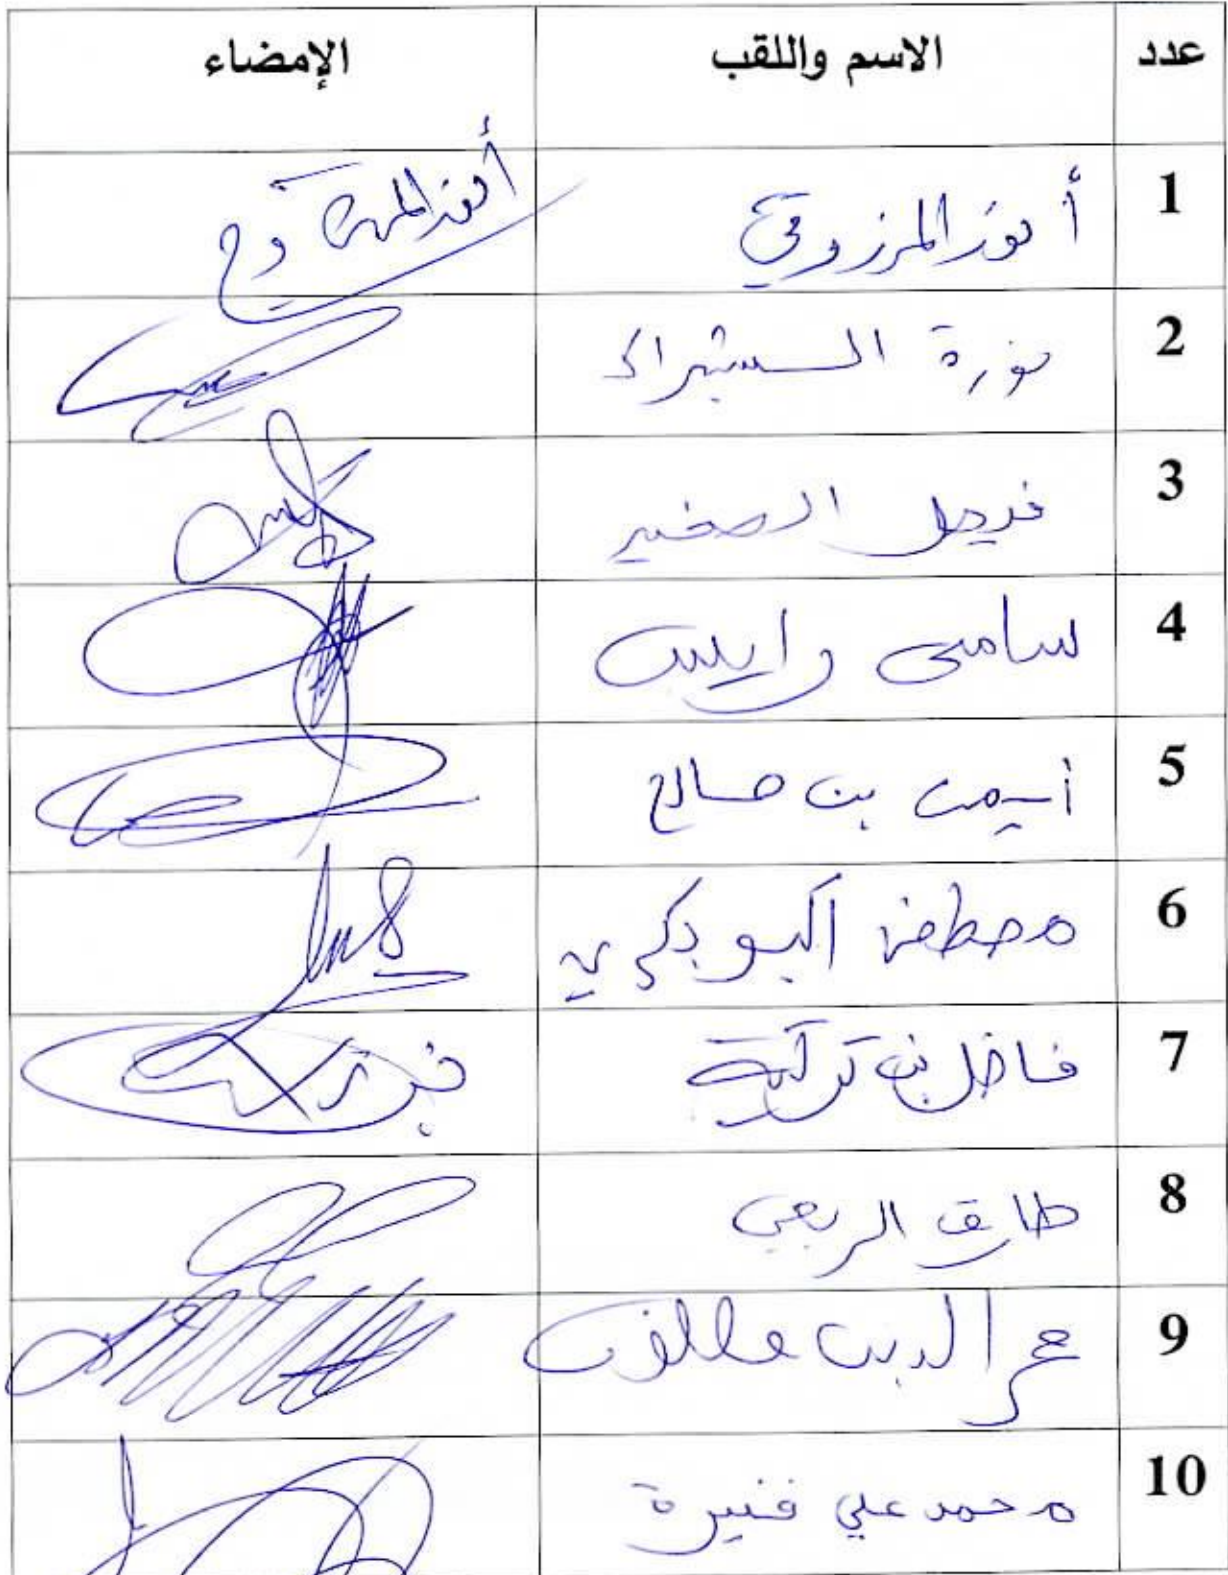 عدد الاسم واللقب الإمضاء
1 أنور المرزوقي أنور المرزوقي
2 نورة الشبراك
3 فيصل الصغير
4 سامي رايس
5 أيمن بن صالح
6 مصطفى البوبكري
7 فاضل بن تركية
8 طارق الربعي
9 عز الدين مخلوف
10 محمد علي فنيرة